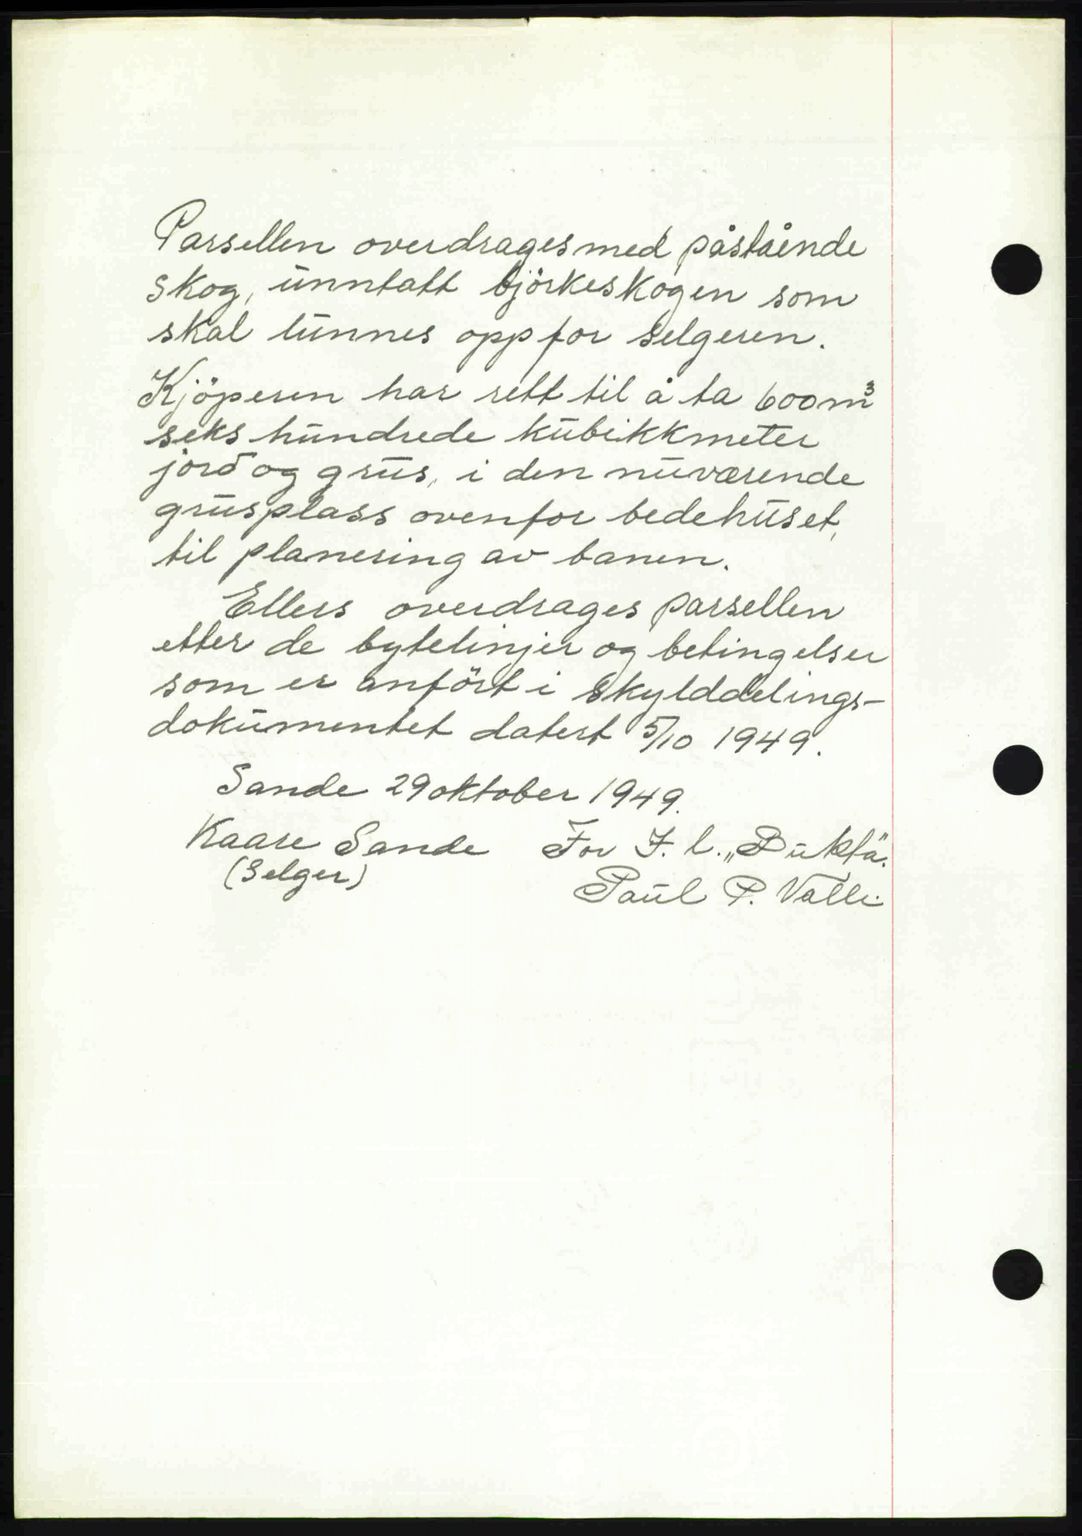 Parsellen overdrages med påstående
skog, unntatt björkeskogen som
skal tünnes opp for selgeren.
Kjöperen har rett til å ta 600 m³
seks hundrede kubikkmeter
jord og grus, i den nuværende
grusplass ovenfor bedehuset,
til planering av banen.
Ellers overdrages parsellen
etter de bytelinjer og betingelser
som er anfört i skylddelings-
dokumentet datert 5/10 1949.
Sande 29 oktober 1949.
Kaare Sande For I. l. „Buktä.
(Selger) Paul P. Valle.